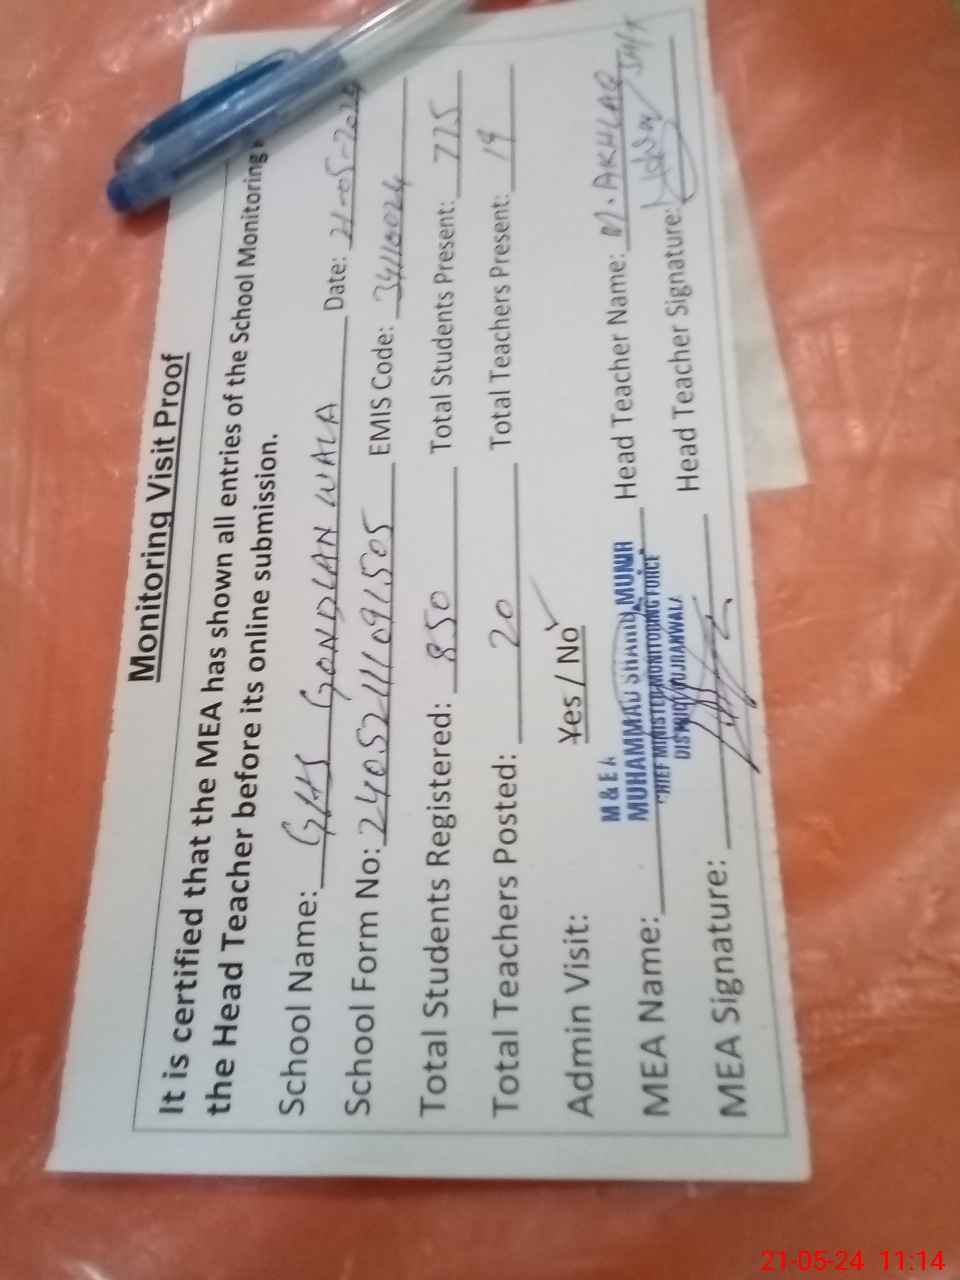 Monitoring Visit Proof
It is certified that the MEA has shown all entries of the School Monitoring
the Head Teacher before its online submission.
School Name: GHS GONDLAN WALA Date: 21-05-2024
School Form No: 24052111091505 EMIS Code: 34110024
Total Students Registered: 850 Total Students Present: 775
Total Teachers Posted: 20 Total Teachers Present: 19
Admin Visit: Yes / No
M & EA
MEA Name: MUHAMMAD SHAHID MUNIR Head Teacher Name: M. AKHLAQ
CHIEF MINISTER MONITORING FORCE
DISTRICT GUJRANWALA
MEA Signature: Head Teacher Signature:
21-05-24 11:14